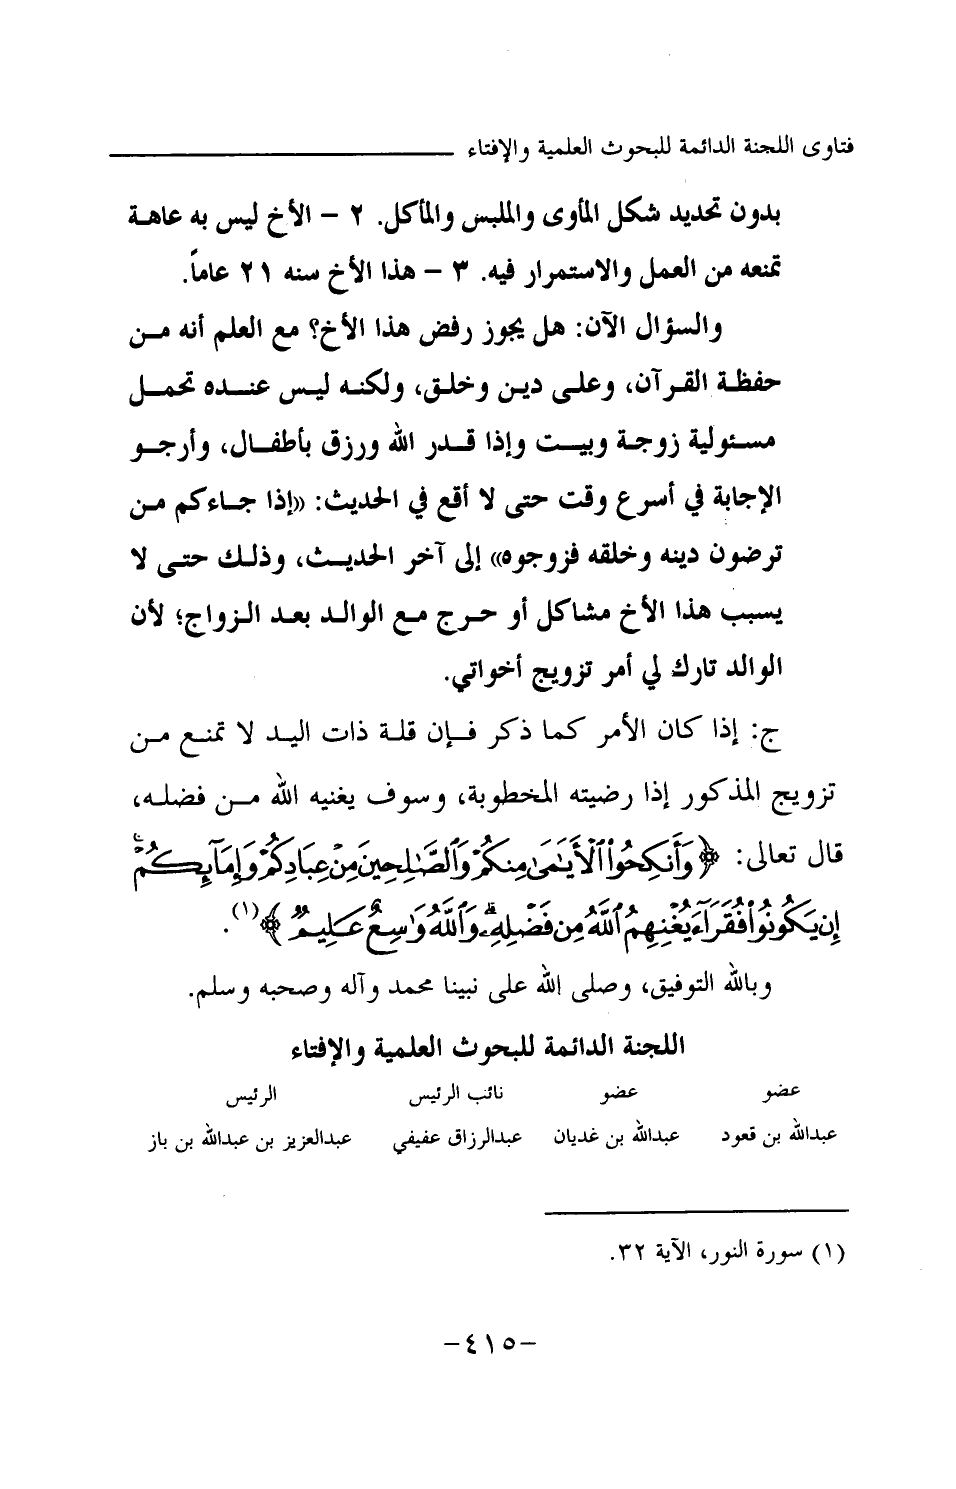 فتاوى اللجنة الدائمة للبحوث العلمية والإفتاء
بدون تحديد شكل المأوى والملبس والمأكل. ٢ - الأخ ليس به عاهة
تمنعه من العمل والاستمرار فيه. ٣ - هذا الأخ سنه ٢١ عاماً.
والسؤال الآن: هل يجوز رفض هذا الأخ؟ مع العلم أنه من
حفظة القرآن، وعلى دين وخلق، ولكنه ليس عنده تحمل
مسئولية زوجة وبيت وإذا قدر الله ورزق بأطفال، وأرجو
الإجابة في أسرع وقت حتى لا أقع في الحديث: «إذا جاءكم من
ترضون دينه وخلقه فزوجوه» إلى آخر الحديث، وذلك حتى لا
يسبب هذا الأخ مشاكل أو حرج مع الوالد بعد الزواج؛ لأن
الوالد تارك لي أمر تزويج أخواتي.
ج: إذا كان الأمر كما ذكر فإن قلة ذات اليد لا تمنع من
تزويج المذكور إذا رضيته المخطوبة، وسوف يغنيه الله من فضله،
قال تعالى: ﴿وَأَنكِحُوا۟ ٱلْأَيَـٰمَىٰ مِنكُمْ وَٱلصَّـٰلِحِينَ مِنْ عِبَادِكُمْ وَإِمَآئِكُمْ ۚ
إِن يَكُونُوا۟ فُقَرَآءَ يُغْنِهِمُ ٱللَّهُ مِن فَضْلِهِۦ ۗ وَٱللَّهُ وَٰسِعٌ عَلِيمٌ﴾(١).
وبالله التوفيق، وصلى الله على نبينا محمد وآله وصحبه وسلم.
اللجنة الدائمة للبحوث العلمية والإفتاء
عضو عضو نائب الرئيس الرئيس
عبدالله بن قعود عبدالله بن غديان عبدالرزاق عفيفي عبدالعزيز بن عبدالله بن باز
(١) سورة النور، الآية ٣٢.
-٤١٥-